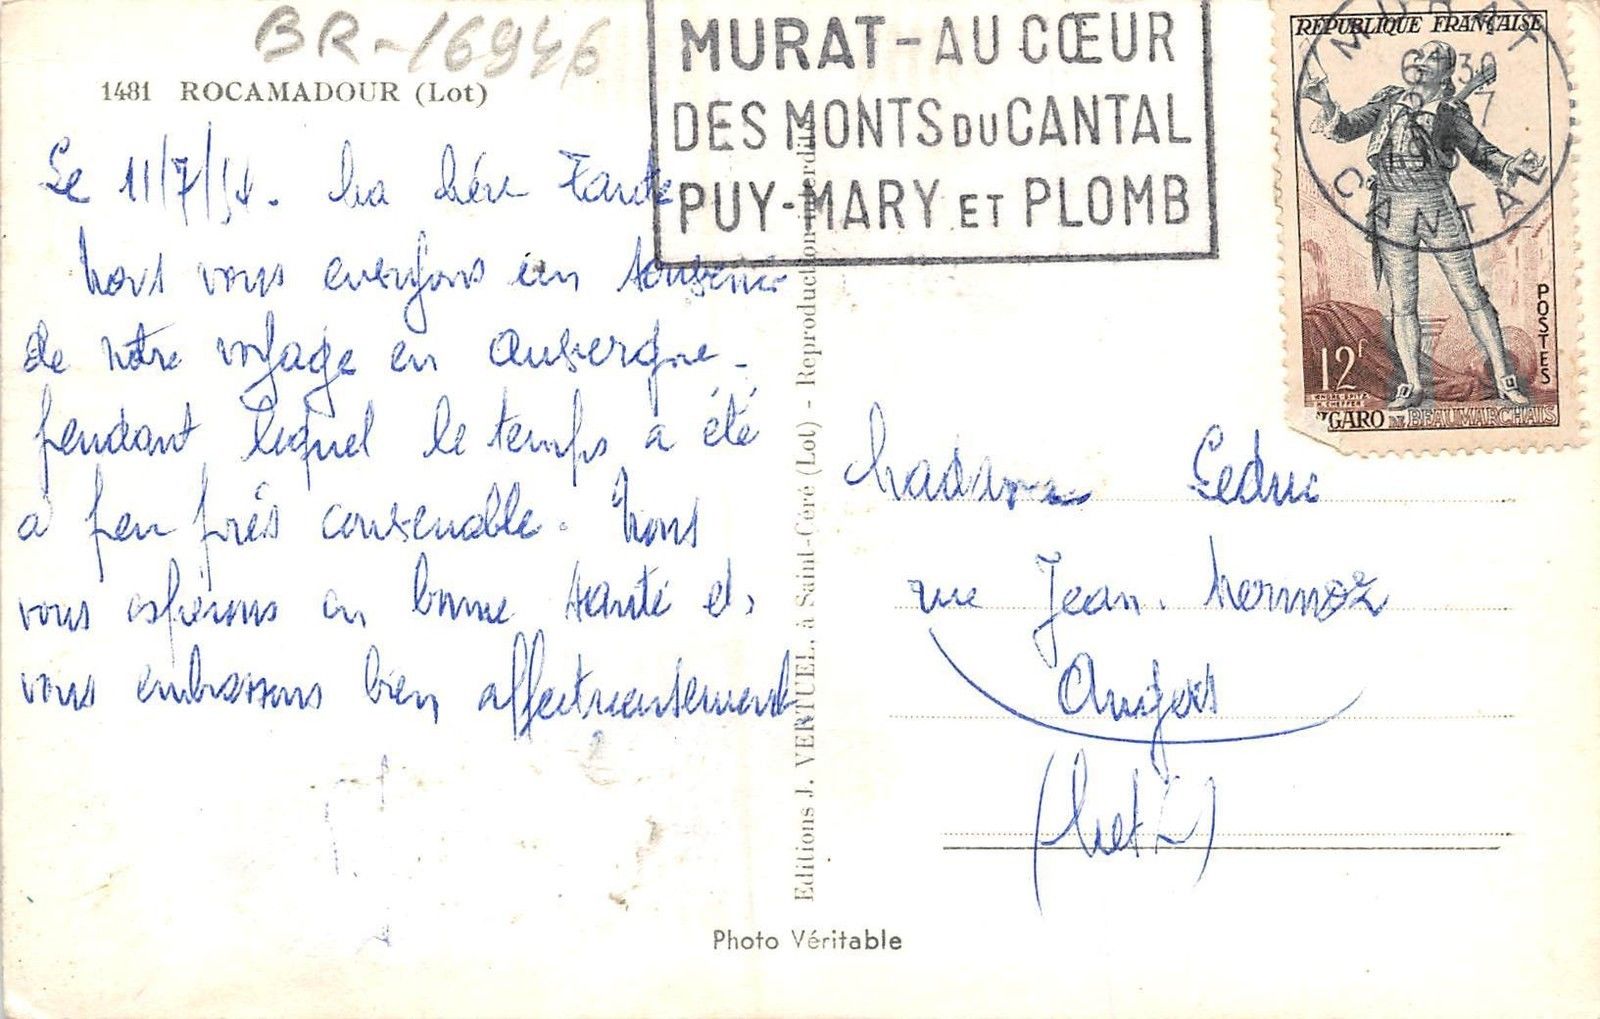 BR-16946
1481 ROCAMADOUR (Lot)
MURAT - AU CŒUR
DES MONTS DU CANTAL
PUY-MARY ET PLOMB
REPUBLIQUE FRANÇAISE
POSTES
12F
GARO DE BEAUMARCHAIS
MURAT
CANTAL
Le 11/7/54. Ma chère Tante
Nous vous envoyons un souvenir
de notre voyage en Auvergne
pendant lequel le temps a été
à peu près convenable. Nous
vous espérons en bonne santé et,
vous embrassons bien affectueusement
Editions J. VERTUEL, à Saint-Céré (Lot) - Reproduction interdite
Madame Leduc
rue Jean. Mermoz
Angers
(M et L)
Photo Véritable